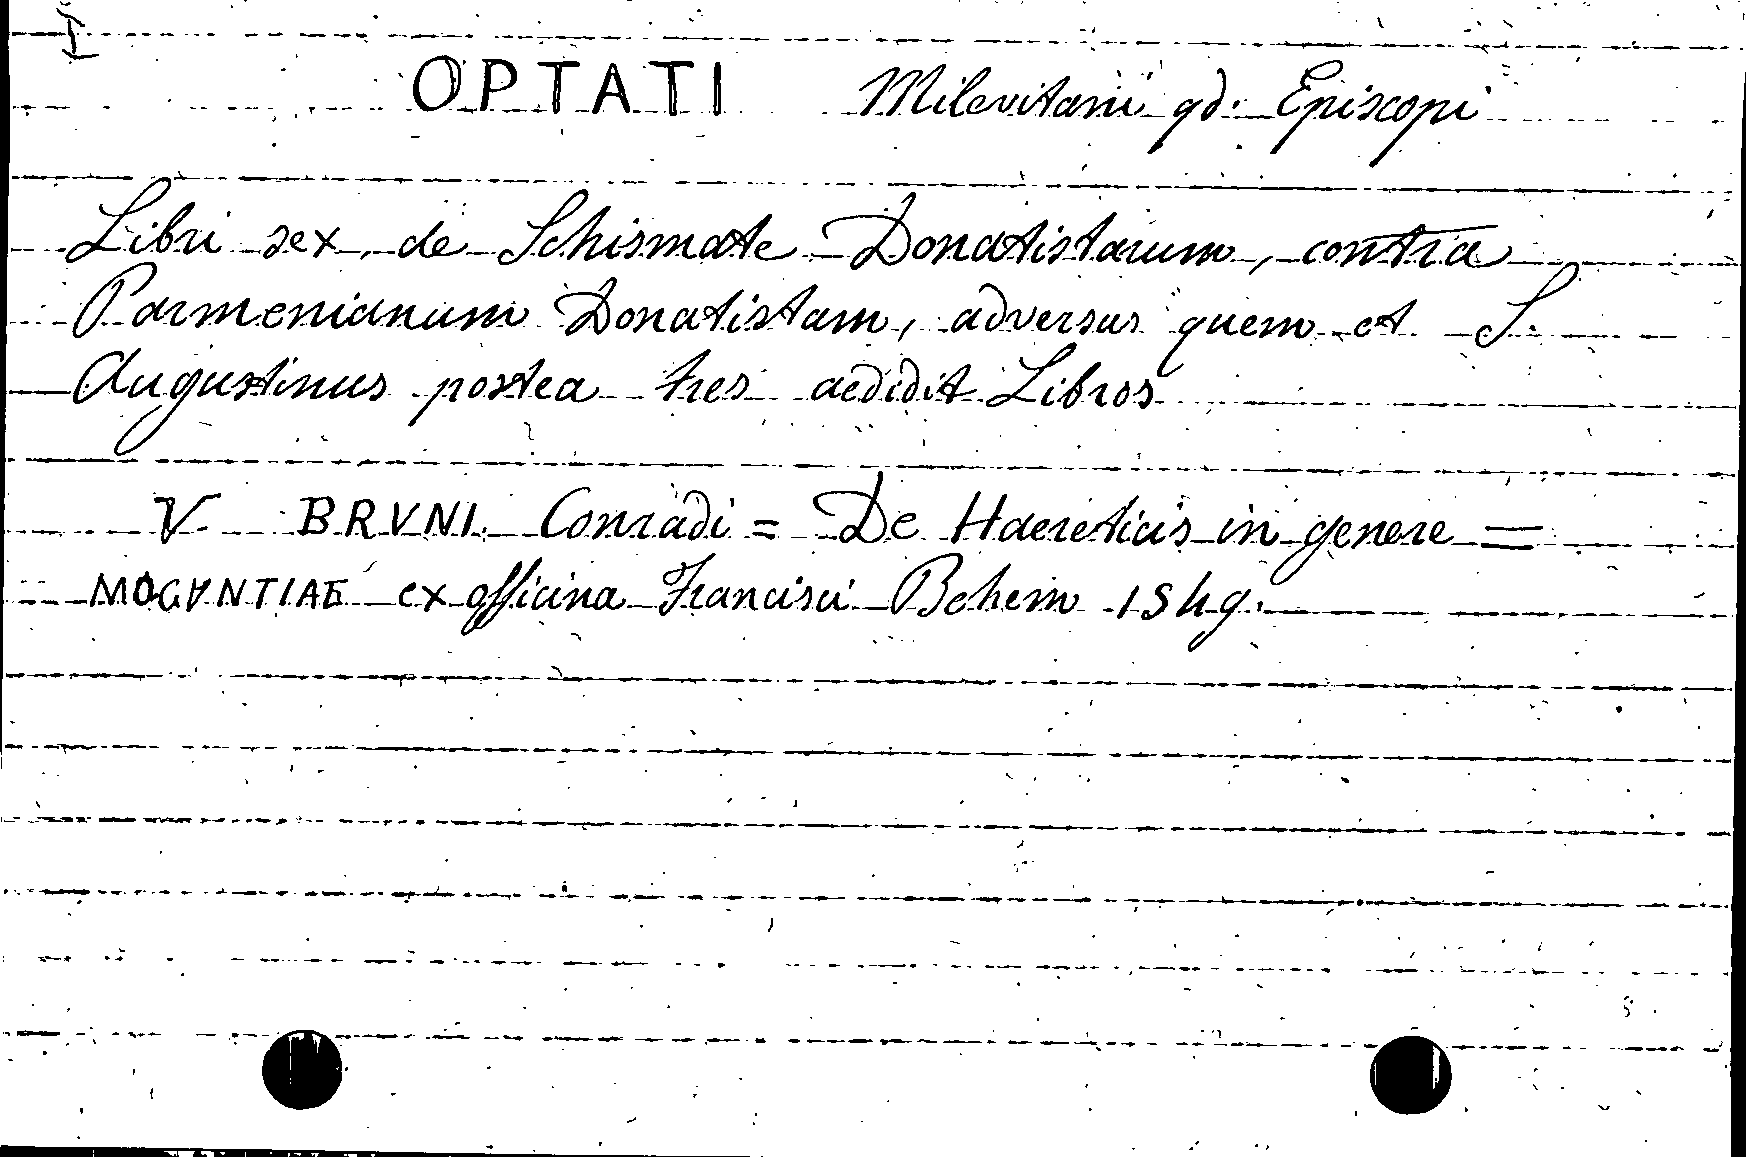 I
OPTATI Milevitani qd. Episcopi
Libri sex, de Schismate Donatistarum, contra
Parmenianum Donatistam, adversus quem et S.
Augustinus postea tres aedidit Libros
V BRVNI Conradi = De Haereticis in genere =
MOGVNTIAE ex officina Francisci Behem 1549.